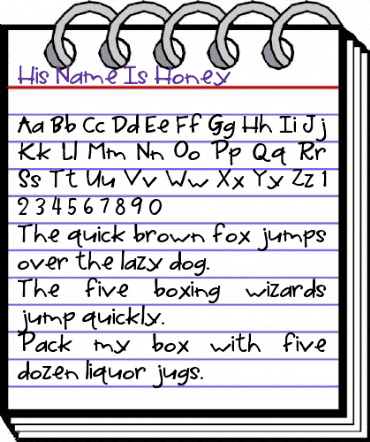 His Name Is Honey
Aa Bb Cc Dd Ee Ff Gg Hh Ii Jj
Kk Ll Mm Nn Oo Pp Qq Rr
Ss Tt Uu Vv Ww Xx Yy Zz 1
2 3 4 5 6 7 8 9 0
The quick brown fox jumps
over the lazy dog.
The five boxing wizards
jump quickly.
Pack my box with five
dozen liquor jugs.